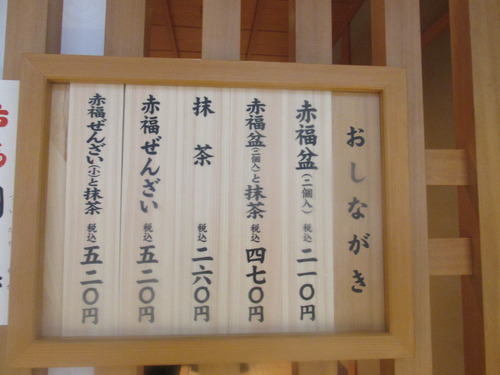 おしながき
赤福盆(二個入) 税込 二一〇円
赤福盆(二個入)と抹茶 税込 四七〇円
抹茶 税込 二六〇円
赤福ぜんざい 税込 五二〇円
赤福ぜんざい(小)と抹茶 税込 五二〇円